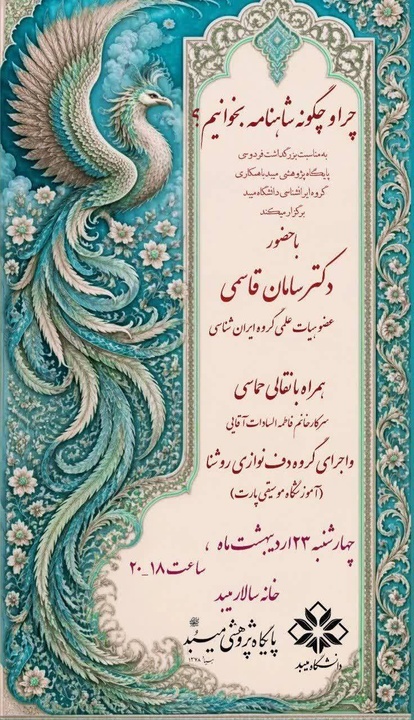 چرا و چگونه شاهنامه بخوانیم؟
به مناسبت بزرگداشت فردوسی
پایگاه پژوهشی میبد با همکاری
گروه ایرانشناسی دانشگاه میبد
برگزار میکند
با حضور
دکتر سامان قاسمی
عضو هیات علمی گروه ایران شناسی
همراه با نقالی حماسی
سرکار خانم فاطمه السادات آقایی
و اجرای گروه دف نوازی روشنا
(آموزشگاه موسیقی پارت)
چهارشنبه ۲۳ اردیبهشت ماه ،
ساعت ۱۸_۲۰
خانه سالار میبد
پایگاه پژوهشی میبد
۱۳۷۸
دانشگاه میبد